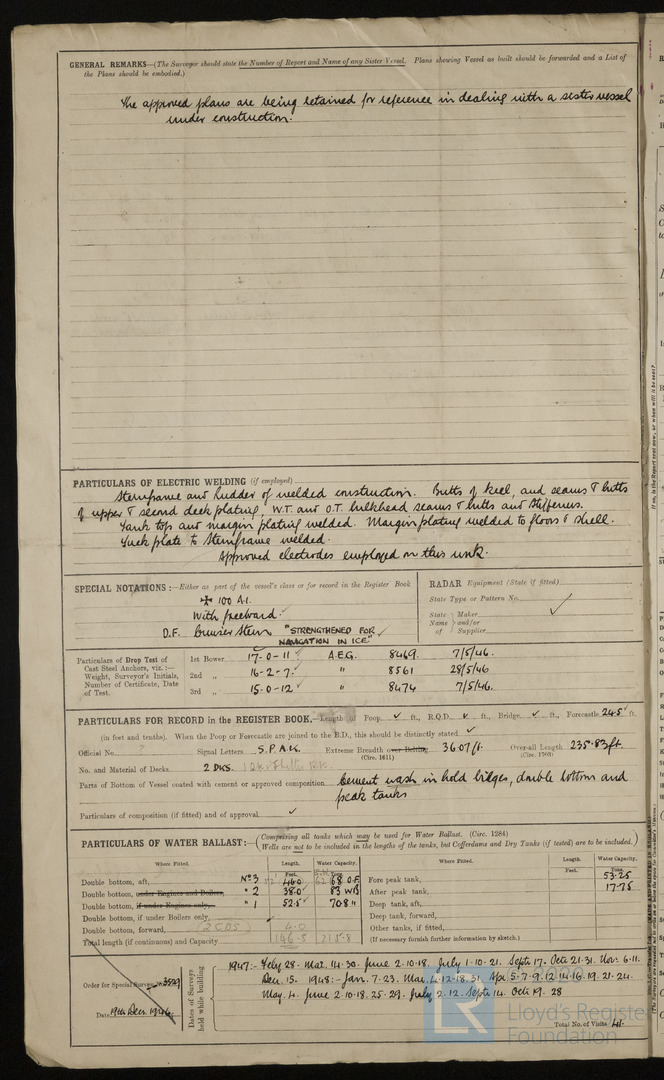 GENERAL REMARKS—(The Surveyor should state the Number of Report and Name of any Sister Vessel. Plans showing Vessel as built should be forwarded and a List of
the Plans should be embodied.)
The approved plans are being retained for reference in dealing with a sister vessel
under construction.
PARTICULARS OF ELECTRIC WELDING (if employed)
Sternframe and Rudder of welded construction. Butts of keel, and seams & butts
of upper & second deck plating, W.T. and O.T. bulkhead seams & butts and stiffeners.
Tank tops and margin plating welded. Margin plating welded to floors & shell.
plate to Sternframe welded.
Approved electrodes employed on this work.
SPECIAL NOTATIONS:—Either as part of the vessel's class or for record in the Register Book
✠ 100 A.1.
With freeboard.
D.F. Cruiser Stern "STRENGTHENED FOR
NAVIGATION IN ICE"
RADAR Equipment (State if fitted)
State Type or Pattern No.
State Name of } Maker and/or Supplier
Particulars of Drop Test of Cast Steel Anchors, viz.:— Weight, Surveyor's Initials, Number of Certificate, Date of Test.
1st Bower 17-0-11 A.E.G. 8469 7/5/46.
2nd „ 16-2-7 " 8561 28/5/46
3rd „ 15-0-12 " 8474 7/5/46.
PARTICULARS FOR RECORD in the REGISTER BOOK.—Length of Poop ft., R.Q.D. ft., Bridge ft., Forecastle 24.5 ft.
(in feet and tenths). When the Poop or Forecastle are joined to the B.D., this should be distinctly stated
Official No. Signal Letters S.P.A.K. Extreme Breadth over Belting (Circ. 1611) 36.07 ft. Over-all Length (Circ. 1703) 235.83 ft.
No. and Material of Decks 2 DKS.
Parts of Bottom of Vessel coated with cement or approved composition Cement wash in hold bilges, double bottom and
peak tanks
Particulars of composition (if fitted) and of approval
PARTICULARS OF WATER BALLAST:— (Comprising all tanks which may be used for Water Ballast. (Circ. 1284)
Wells are not to be included in the lengths of the tanks, but Cofferdams and Dry Tanks (if tested) are to be included.)
Where Fitted. Length. Feet. Water Capacity. Tons. Where Fitted. Length. Feet. Water Capacity. Tons.
Double bottom, aft, No 3 46.0 68 O.F. Fore peak tank, 53.25
Double bottom, under Engines and Boilers, " 2 38.0 83 WB After peak tank, 17.75
Double bottom, if under Engines only, " 1 52.5 70.8 " Deep tank, aft,
Double bottom, if under Boilers only, Deep tank, forward,
Double bottom, forward, Other tanks, if fitted,
Total length (if continuous) and Capacity 146.5 215.8 (If necessary furnish further information by sketch.)
Order for Special Survey No. 3529
Date 9th Dec. 1946
Dates of Surveys held while building
1947:- Feby 28. Mar. 14. 30. June 2. 10. 18. July 1. 10. 21. Septr 17. Octr 21. 31. Nov. 6. 11.
Dec. 15. 1948:- Jan. 7. 23. Mar. 4. 12. 18. 31. Apl 5. 7. 9. 12. 14. 16. 19. 21. 24.
May. 4. June 2. 10. 18. 25. 29. July 2. 12. Septr 14. Octr 19. 28
Total No. of Visits 41.
LR
Lloyd's Register
Foundation